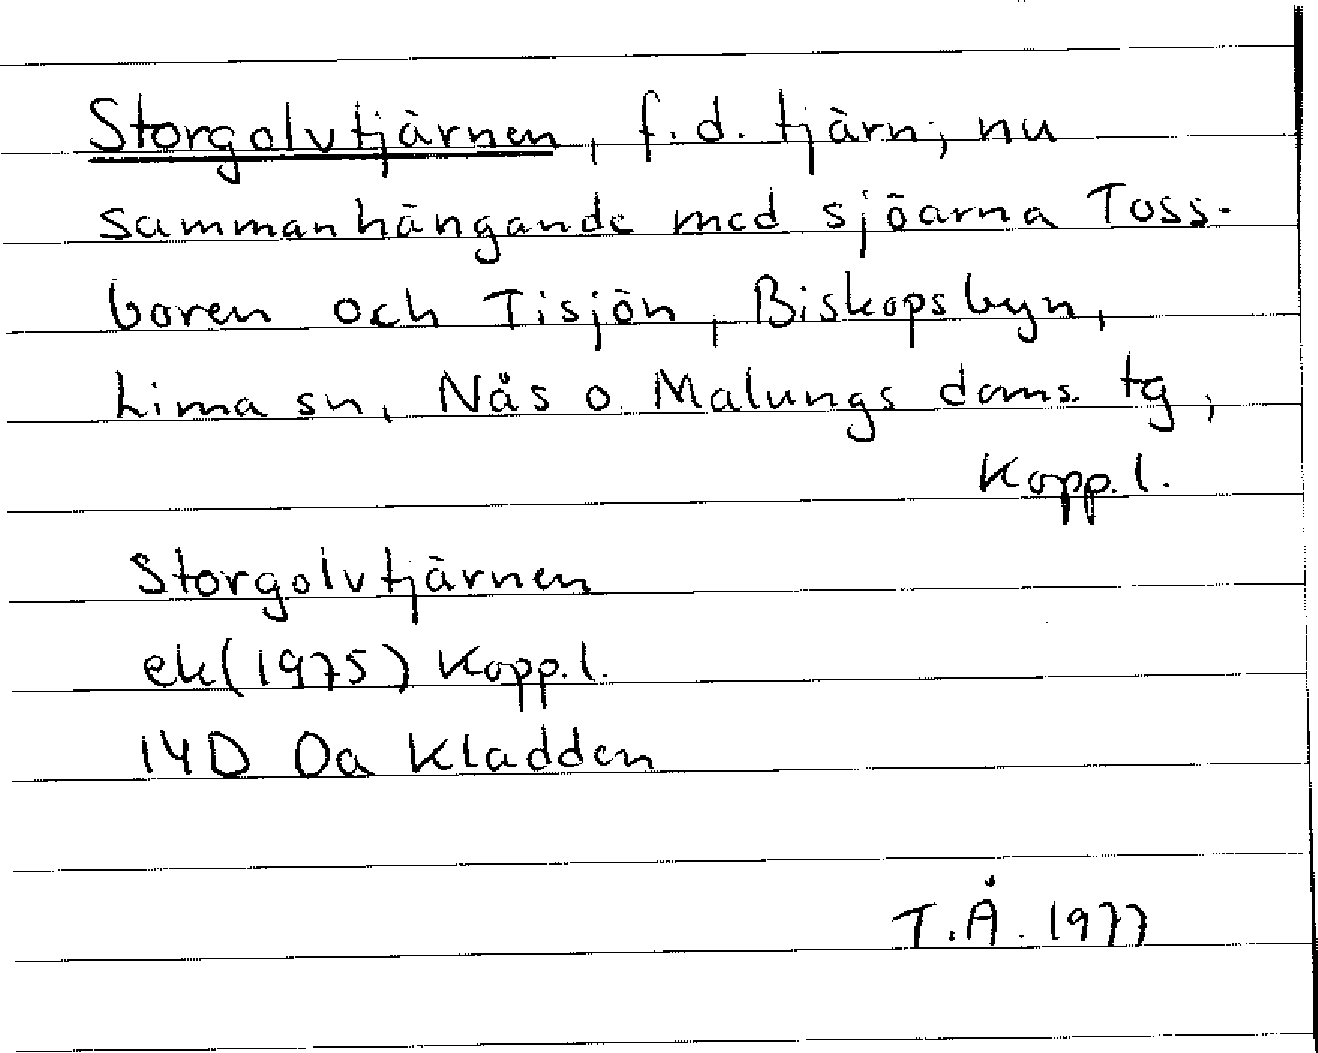 Storgolvtjärnen, f.d. tjärn, nu
sammanhängande med sjöarna Toss-
boren och Tisjön, Biskopsbyn,
Lima sn, Nås o. Malungs doms. tg,
Kopp.l.
Storgolvtjärnen
ek(1975) Kopp.l.
14D 0a Kladden
T.Å. 1977